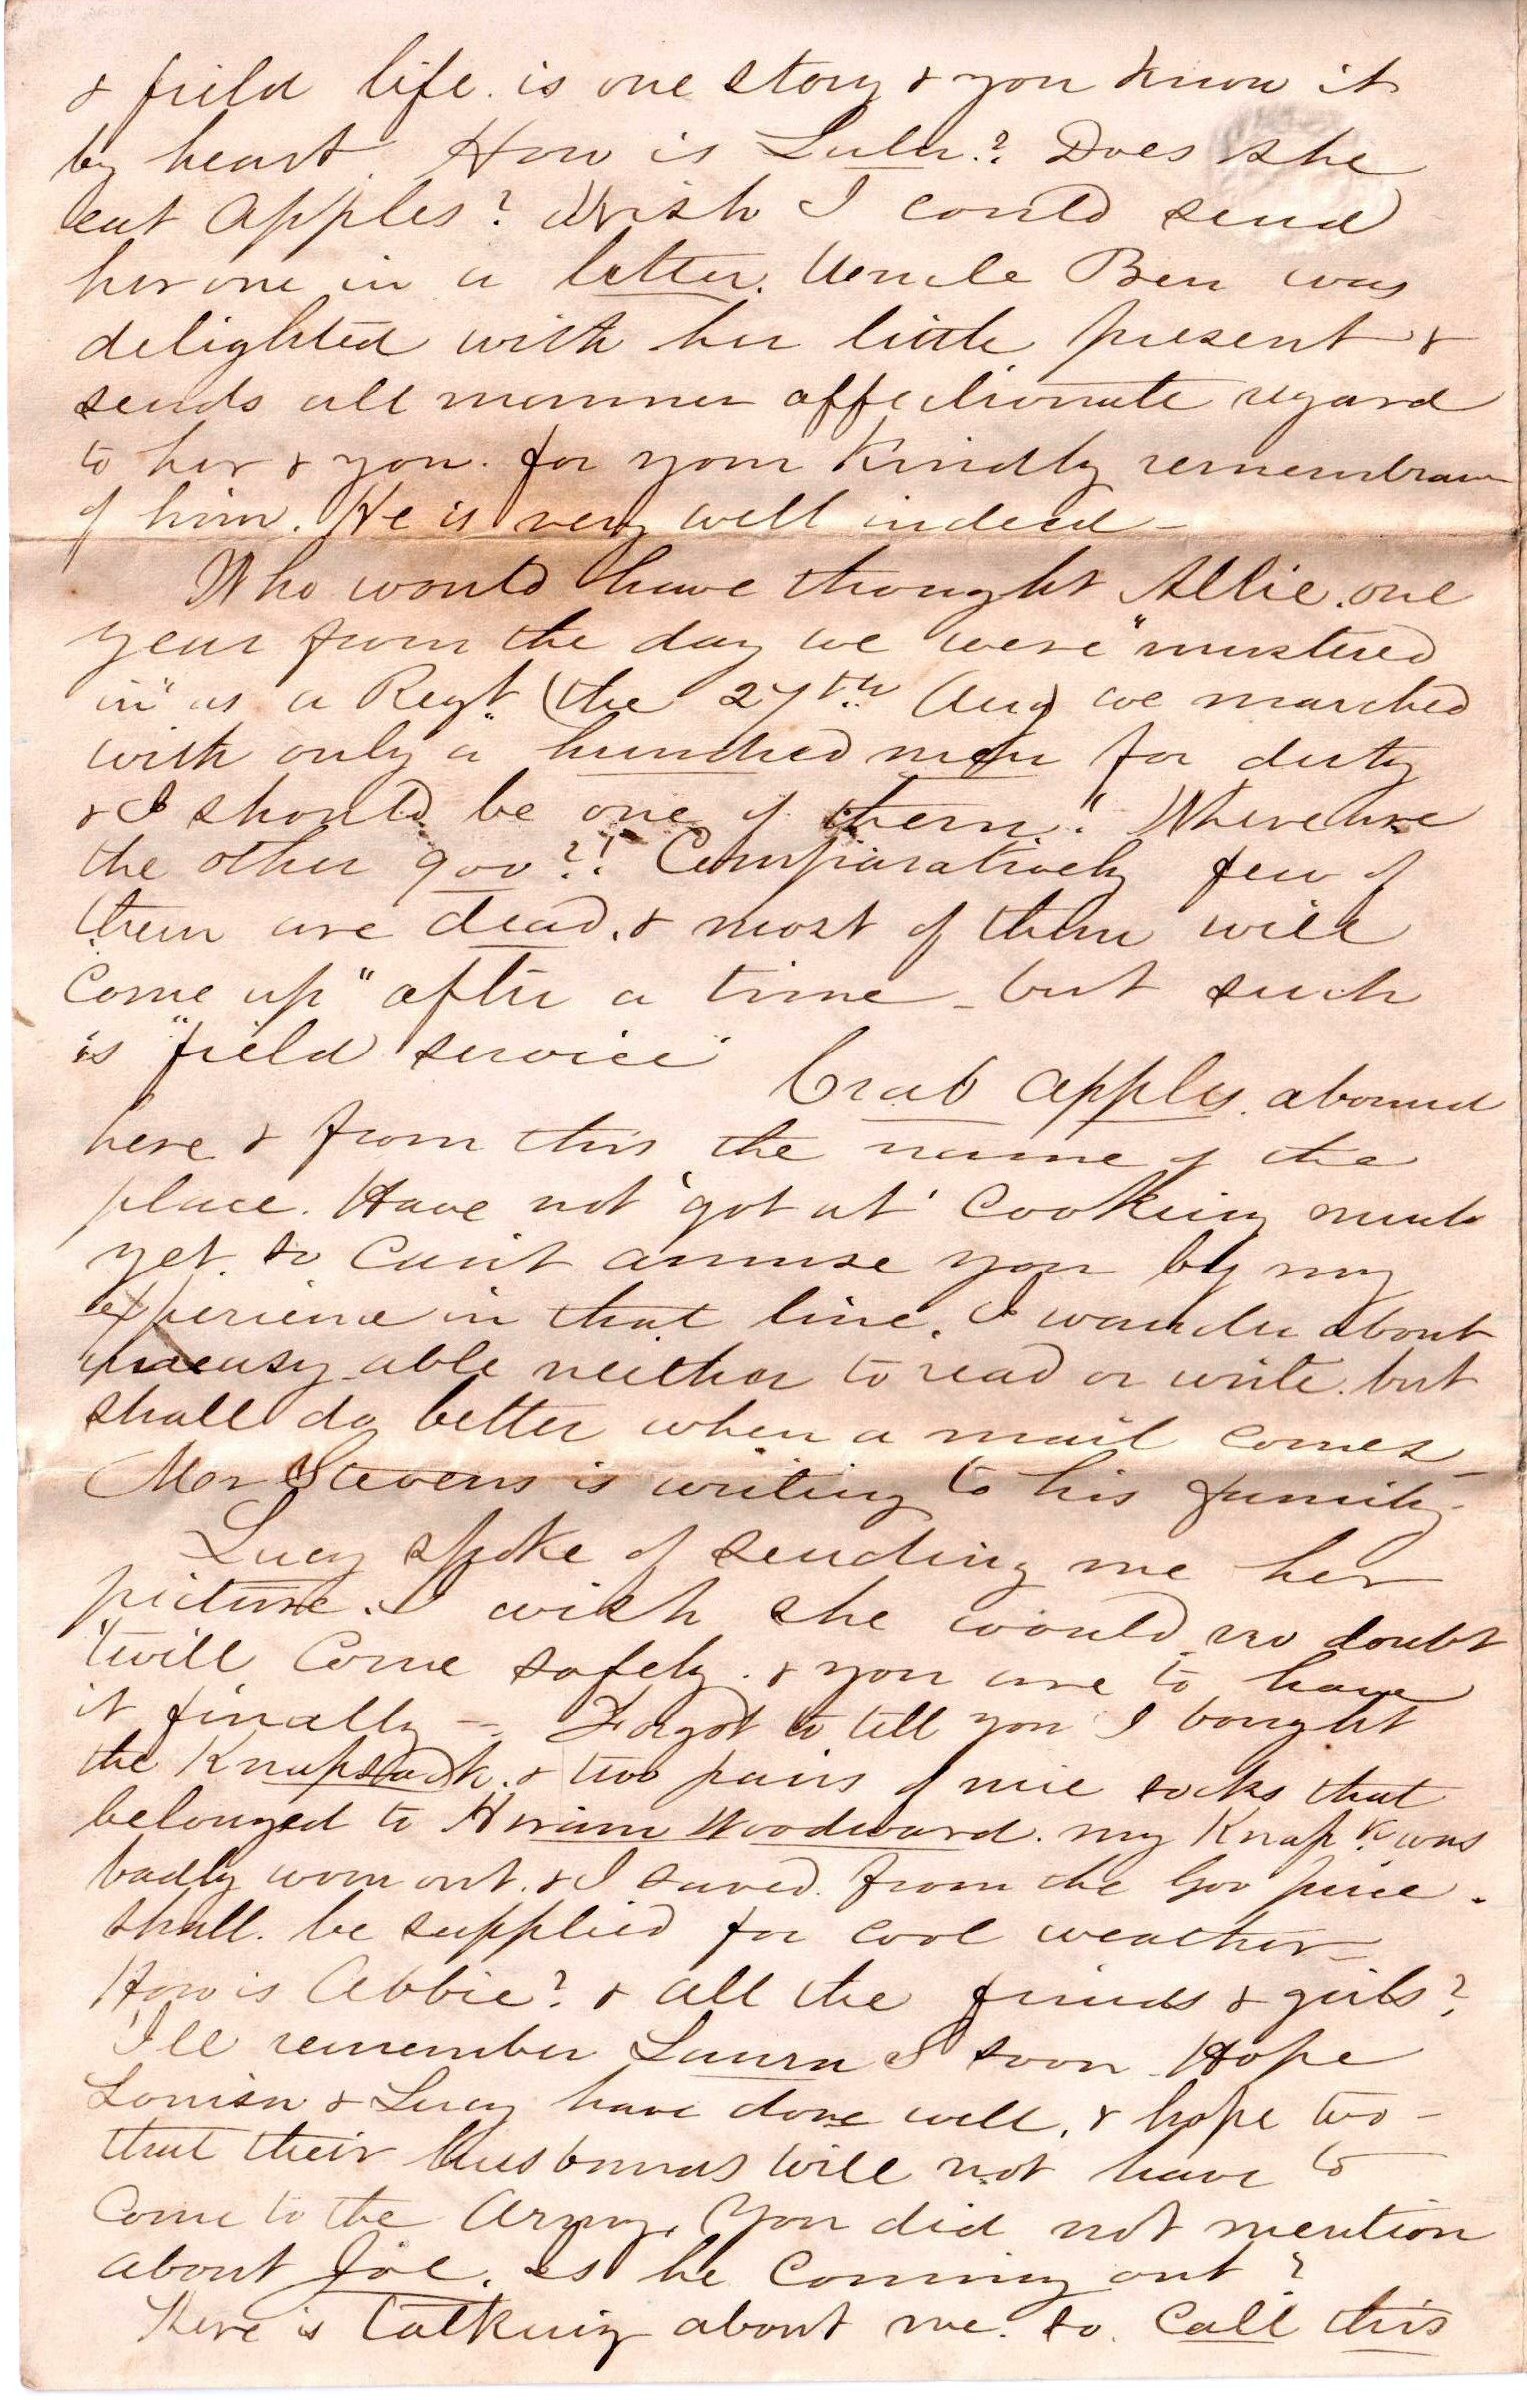 & field life. is one story & you know it
by heart. How is Lulu? Does she
eat apples? Wish I could send
her one in a letter. Uncle Ben was
delighted with her little present &
sends all manner affectionate regard
to her & you. for your kindly remembrance
of him. He is very well indeed -
Who would have thought Allie. one
year from the day we were "mustered
in" as a Regt. (the 27th Aug) we marched
with only a hundred men for duty
& I should be one of them." Where are
the other 900?! Comparatively few of
them are dead. & most of them will
"come up" after a time - but such
is "field service"
Crab apples. abound
here & from this the name of the
place. Have not 'got at' cooking much
yet. so can't amuse you by my
experience in that line. I wander about
uneasy able neither to read or write. but
shall do better when a mail comes -
Mr Stevens is writing to his family -
Lucy spoke of sending me her
picture. I wish she would, no doubt
'twill come safely. & you are to have
it finally -. Forgot to tell you I bought
the Knapsack. & two pairs of nice socks that
belonged to Hiram Woodward. my Knapk. was
badly worn out. & I saved. from the Gov price.
shall. be supplied for cool weather -
How is Abbie? & all the friends & girls?
I'll remember Laura S soon - Hope
Louisa & Lucy have done well, & hope too -
that their husbands will not have to
come to the Army. You did not mention
about Joe. Is he coming out?
There is talking about me. so. call this